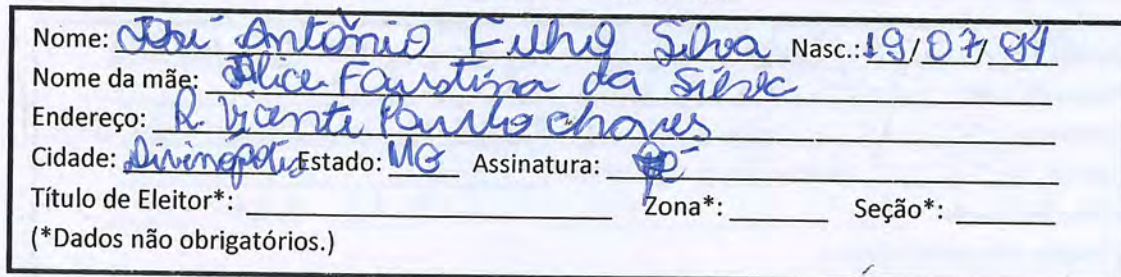 Nome: José Antônio Filho Silva Nasc.: 19/07/94
Nome da mãe: Alice Faustina da Silva
Endereço: R. Vicente Paulo Chaves
Cidade: Divinópolis Estado: MG Assinatura:
Título de Eleitor*: Zona*: Seção*:
(*Dados não obrigatórios.)